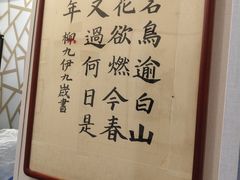 鳥逾白山
花欲燃今春
又過何日是
年
柳九伊九歲書